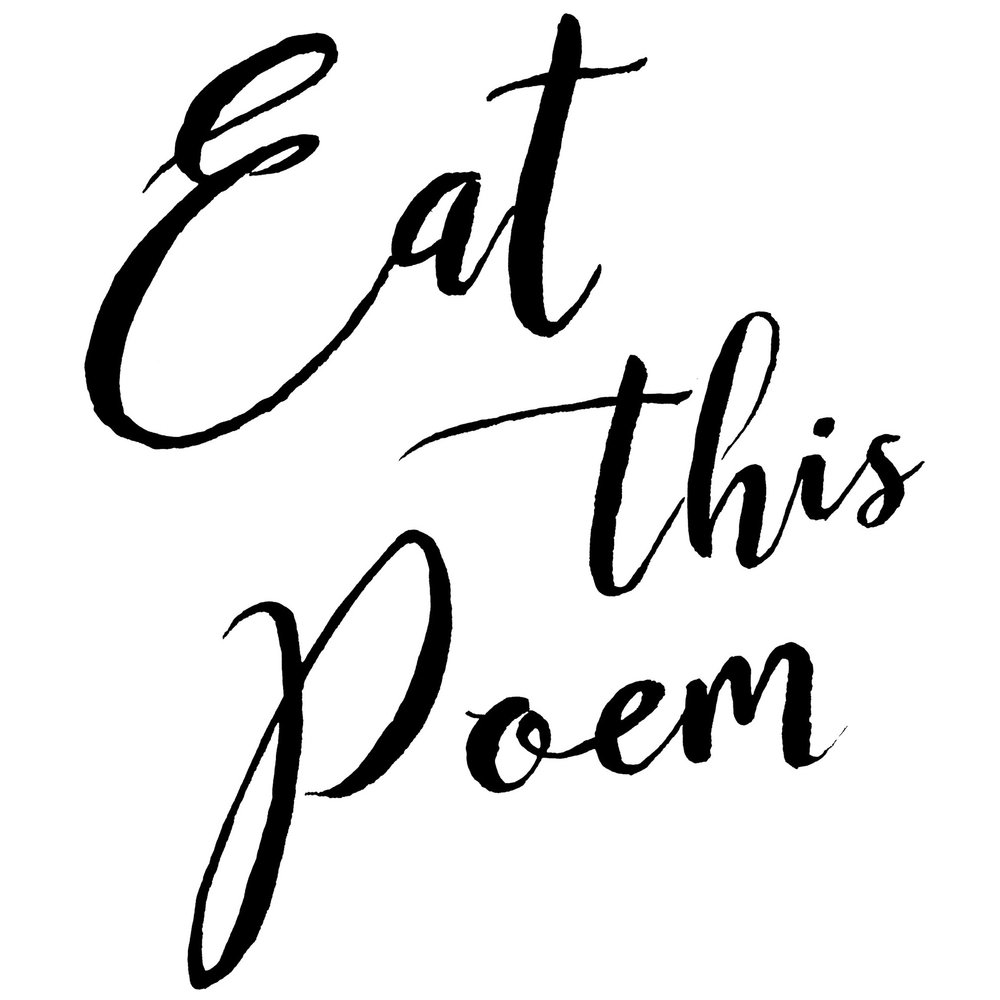 Eat
this
Poem